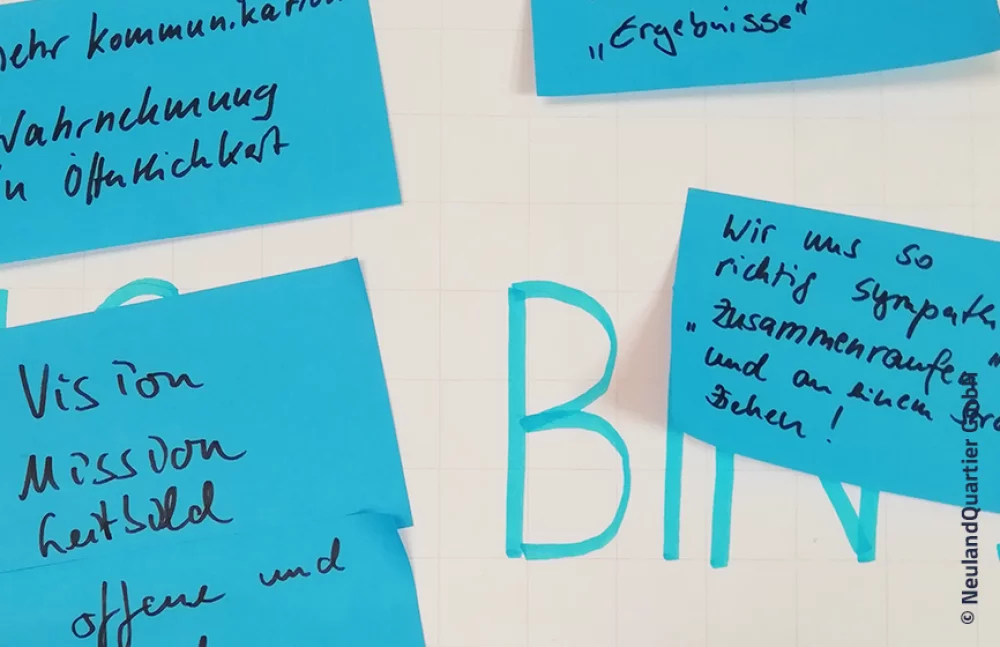 mehr kommunikation
Wahrnehmung
in Öffentlichkeit
„Ergebnisse“
Wir uns so
richtig sympath
„Zusammenraufen“
und an einem
Ziehen!
BIN
Vision
Mission
Leitbild
offene und
© NeulandQuartier GmbH